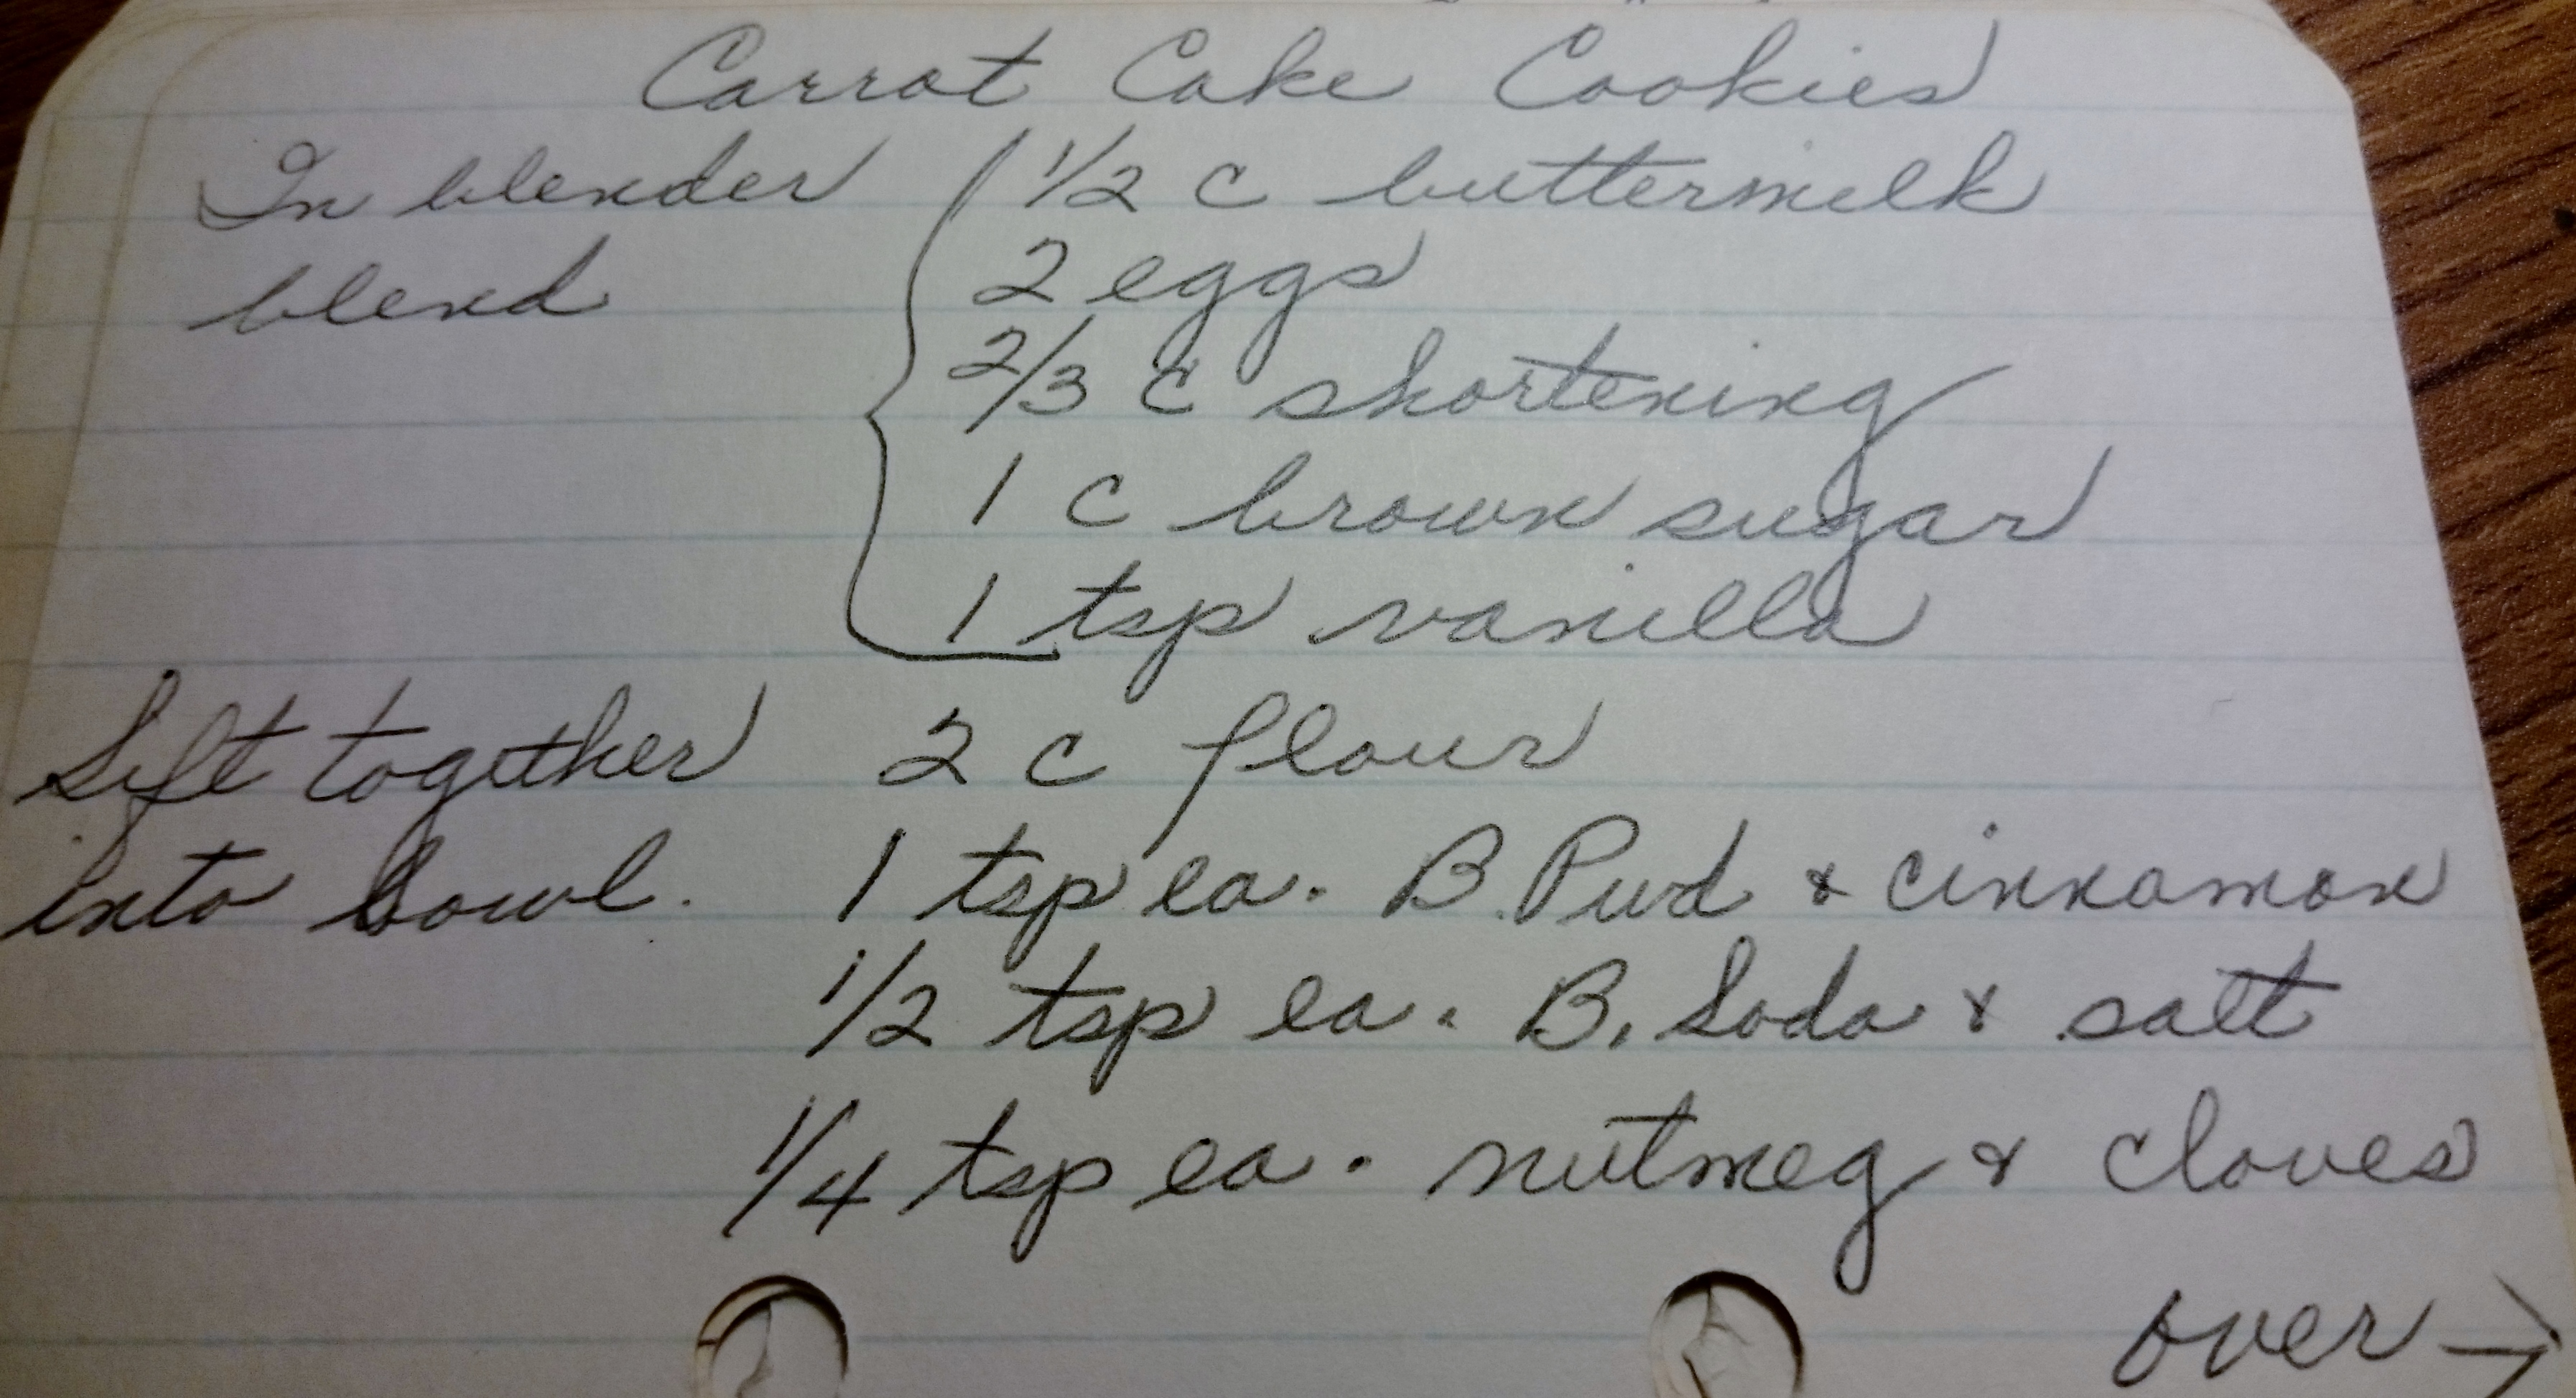 Carrot Cake Cookies
In blender 1/2 c buttermilk
blend 2 eggs
2/3 c shortening
1 c brown sugar
1 tsp vanilla
Sift together 2 c flour
into bowl. 1 tsp ea. B. Pwd & cinnamon
1/2 tsp ea. B. Soda & salt
1/4 tsp ea. nutmeg & cloves
over →